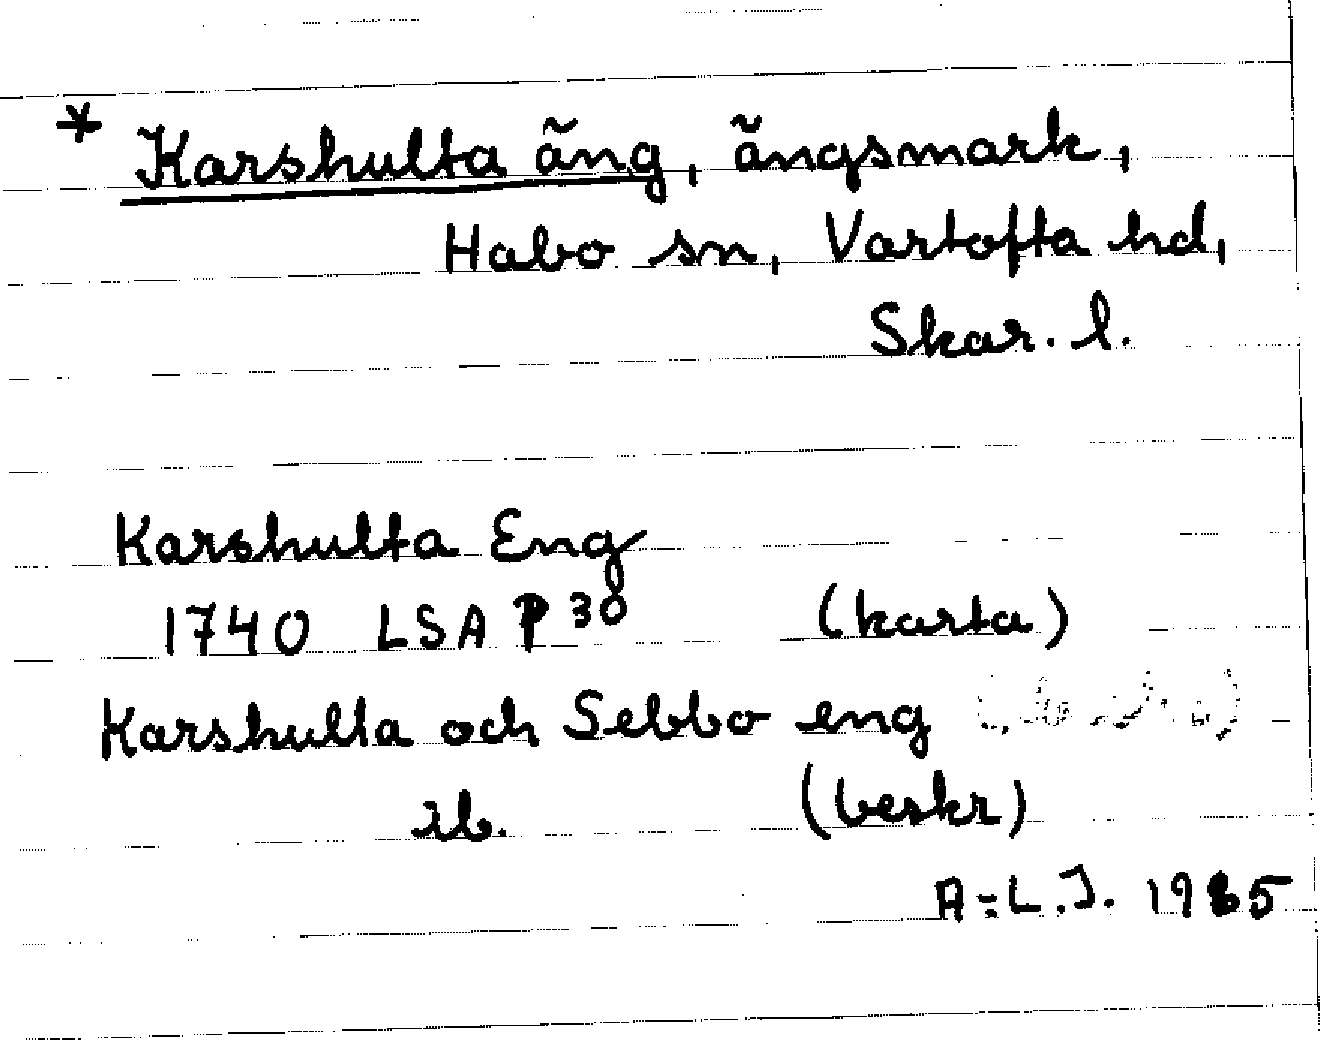 * Karshulta äng, ängsmark,
Habo sn, Vartofta hd,
Skar. l.
Karshulta Eng
1740 LSA P 30 (karta)
Karshulta och Sebbo eng
ib. (beskr)
A-L.J. 1985